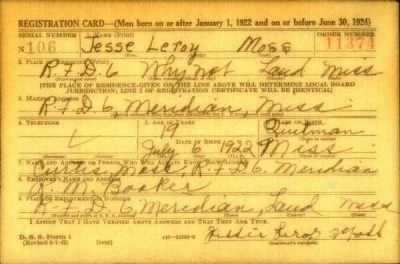 REGISTRATION CARD—(Men born on or after January 1, 1922 and on or before June 30, 1924)
SERIAL NUMBER 1. NAME (Print) ORDER NUMBER
N 106 Jesse Leroy Moss 11374
2. PLACE OF RESIDENCE (Print)
R.F.D. 6 Why not Laud Miss
[THE PLACE OF RESIDENCE GIVEN ON THE LINE ABOVE WILL DETERMINE LOCAL BOARD
JURISDICTION; LINE 2 OF REGISTRATION CERTIFICATE WILL BE IDENTICAL]
3. MAILING ADDRESS
R.F.D. 6, Meridian, Miss.
4. TELEPHONE 5. AGE IN YEARS
19 Quitman
DATE OF BIRTH
July 6 1922 Miss.
7. NAME AND ADDRESS OF PERSON WHO WILL ALWAYS KNOW YOUR ADDRESS
Curtis Moss, R.F.D. 6. Meridian
8. EMPLOYER'S NAME AND ADDRESS
R. M. Booker
9. PLACE OF EMPLOYMENT OR BUSINESS
R.F.D. 6, Meridian, Laud Miss
I AFFIRM THAT I HAVE VERIFIED ABOVE ANSWERS AND THAT THEY ARE TRUE.
D. S. S. Form 1
Jessie Leroy Moss